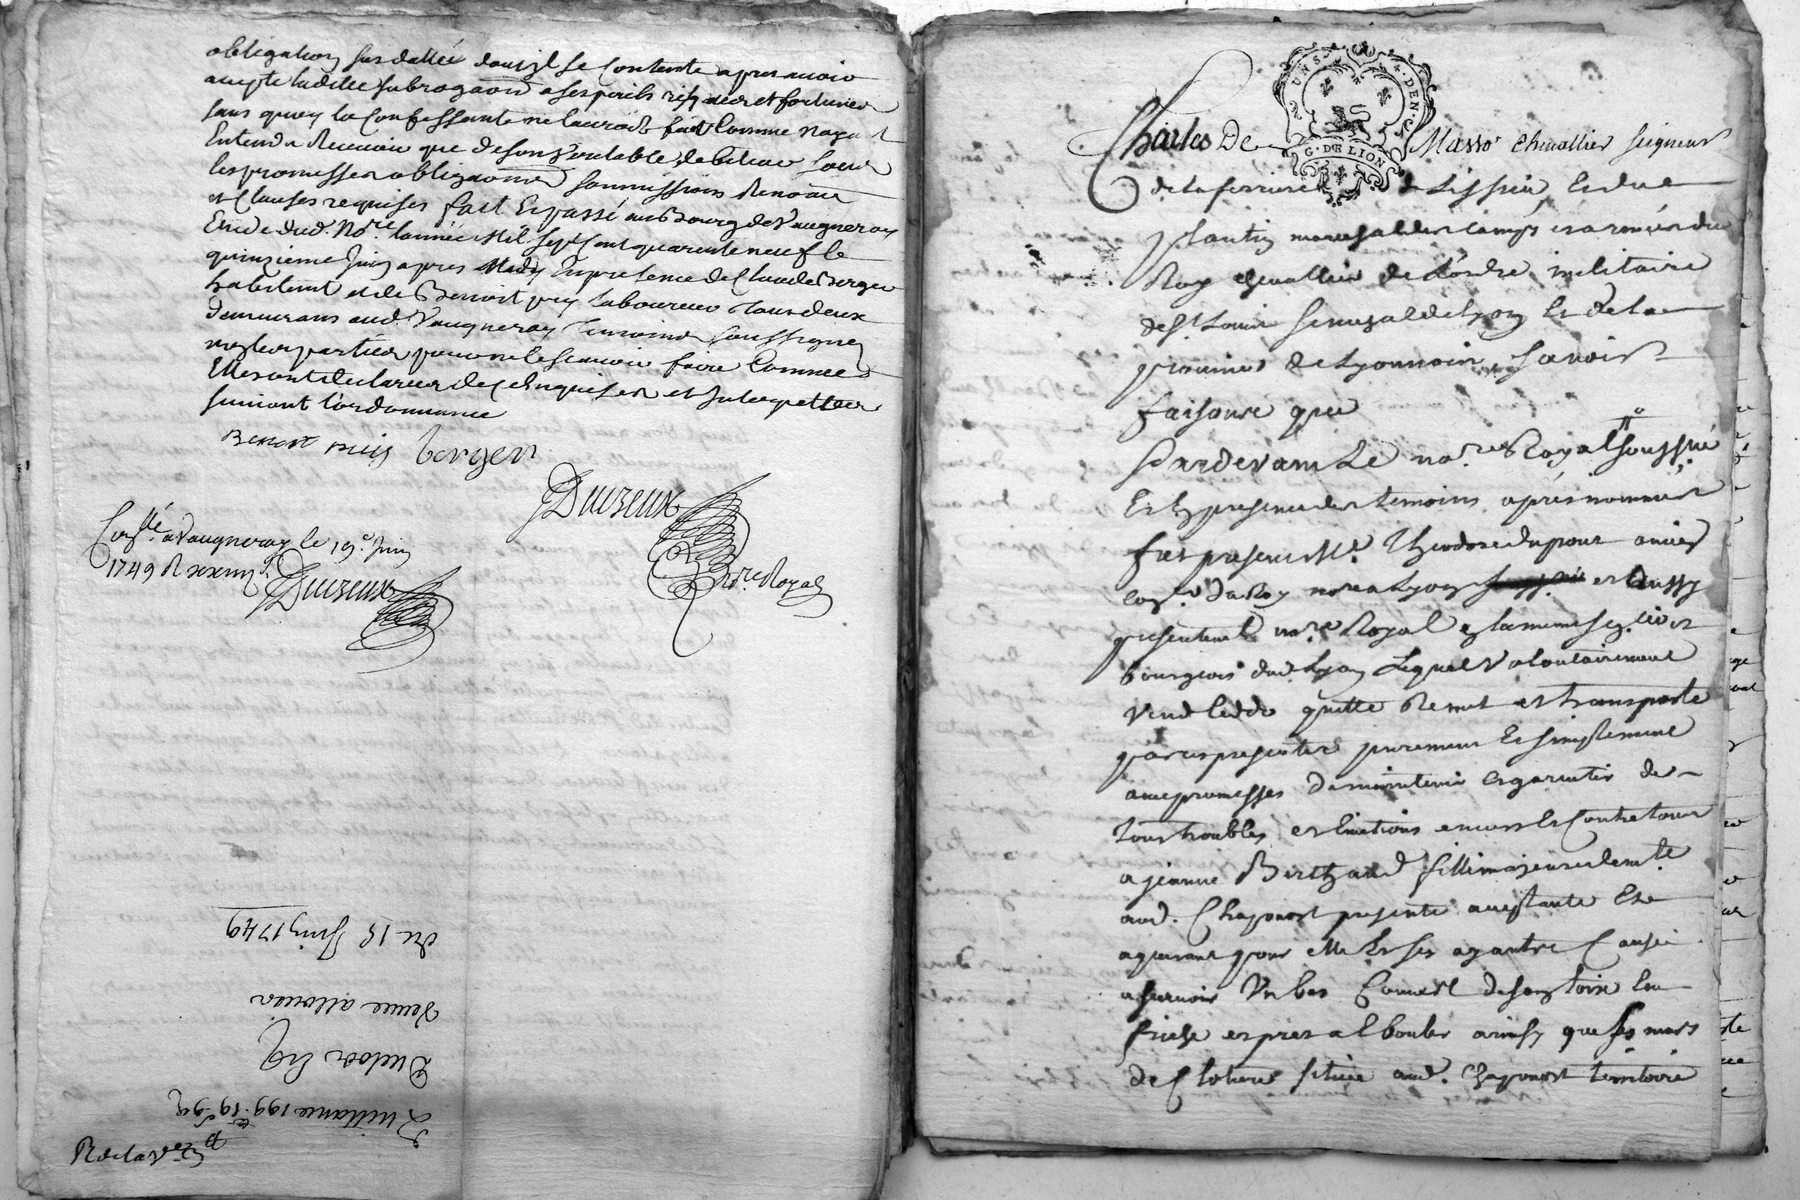 obligation susdattée dont il se contente apres avoir
accepté ladite subrogaon a ses perils risques et fortunes
sans quoy la Confessante ne lauroit fait Comme nayant
Entendu Recevoir que de son veritable debiteur sous
les promesses obligaons soumissions Renonc
et Clauses requises fait Et passé au Bourg de Vaugneray
Etude dud. No.re lannée Mil sept Cent quarente neuf le
quinzieme Juin apres Midy En presence de Claude Berger
habitant et de Benoit puy laboureur tous deux
demeurans aud. Vaugneray temoins soussignez
non les parties pour ne le scavoir faire Comme
Elles ont declaré de ce Enquises et Interpellées
suivant l'ordonnance
Benoit puis Berger
Duizeux
No.re Royal
Con.llé a Vaugneray le 19.e Juin
1749 R
Duizeux
du 15 Juin 1749
Quittance 199.
2 UNS 4 DEN
G. DE LION
Charles De Masso chevallier seigneur
de la ferriere Lissieu, Et du
plantin mareschal des camps et armées du
Roy chevallier de L'ordre militaire
de St Louis senechal de Lyon Et de la
province de Lyonnois, scavoir
faisons que
Pardevant Le no.re Royal soussigné
Et En presence des temoins après nommés
fut present M.e Theodore dupont ancien
con.er du Roy no.re a Lyon et aussy
presentement no.re Royal En la mesme sen.cée et
bourgeois dud. Lyon Lequel volontairement
vend cedde quitte Remet et transporte
par ces presentes purement Et simplement
avec promesses de maintenir et garentir de
tous troubles et Evictions envers Et Contre tous
a jeanne Berthaud fille majeure demte
aud. Chaponost presente acceptante Et
aquerant pour elle Et ses ayants Cause
a scavoir Un bas Couvert de son toise En
friche et pres al bouler ainsy que ses murs
de Cloture située aud. Chaponost territoire